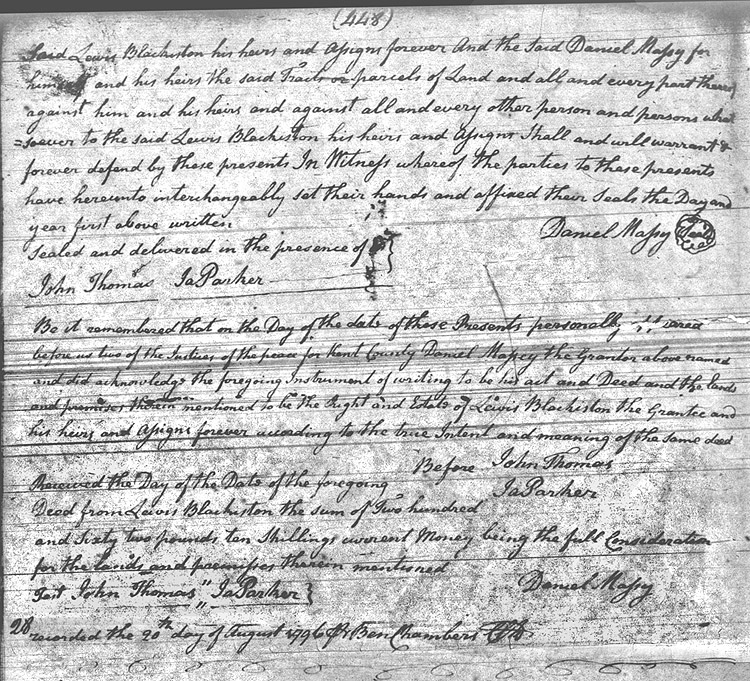 (448)
Said Lewis Blackiston his heirs and Assigns forever And the Said Daniel Massy for
himself and his heirs the said Tracts or parcels of Land and all and every part thereof
against him and his heirs and against all and every other person and persons what
=soever to the said Lewis Blackiston his heirs and Assigns Shall and will warrant &
forever defend by these presents In Witness whereof the parties to these presents
have hereunto interchangeably set their hands and affixed their Seals the Day and
year first above written
Sealed and delivered in the presence of } Daniel Massy Seal
John Thomas JaParker
Be it remembered that on the Day of the date of these Presents personally
before us two of the Justices of the peace for Kent County Daniel Massey the Grantor above named
and did acknowledge the foregoing Instrument of writing to be his act and Deed and the lands
and premises therein mentioned to be the Right and Estate of Lewis Blackiston the Grantee and
his heirs and Assigns forever according to the true Intent and meaning of the same deed
Before John Thomas
JaParker
Received the Day of the Date of the foregoing
Deed from Lewis Blackiston the sum of Two hundred
and Sixty two pounds ten Shillings current Money being the full Consideration
for the lands and premisses therein mentioned
Test John Thomas " JaParker } Daniel Massy
28 recorded the 20th day of August 1796 Pr Ben Chambers Clk